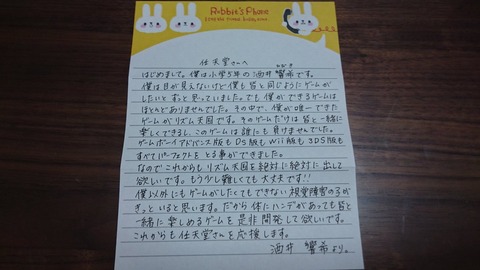 Rabbit's Phone
任天堂さんへ
はじめまして。僕は小学5年の酒井響希です。
ひびき
僕は目が見えないけど僕も皆と同じようにゲームが
したいとずっと思っていました。でも僕ができるゲームは
ほとんどありませんでした。その中で、僕が唯一できた
ゲームがリズム天国です。そのゲームだけは皆と一緒に
楽しくできるし、このゲームは誰にも負けませんでした。
ゲームボーイアドバンス版もDS版もWii版も3DS版も
すべてパーフェクトをとる事ができました。
なのでこれからもリズム天国を絶対に絶対に出して
欲しいです。もう少し難しくても大丈夫です!!
僕以外にもゲームがしたくてもできない視覚障害の子がき
っといると思います。だから体にハンデがあっても皆と
一緒に楽しめるゲームを是非開発して欲しいです。
これからも任天堂さんを応援します。
酒井 響希より。